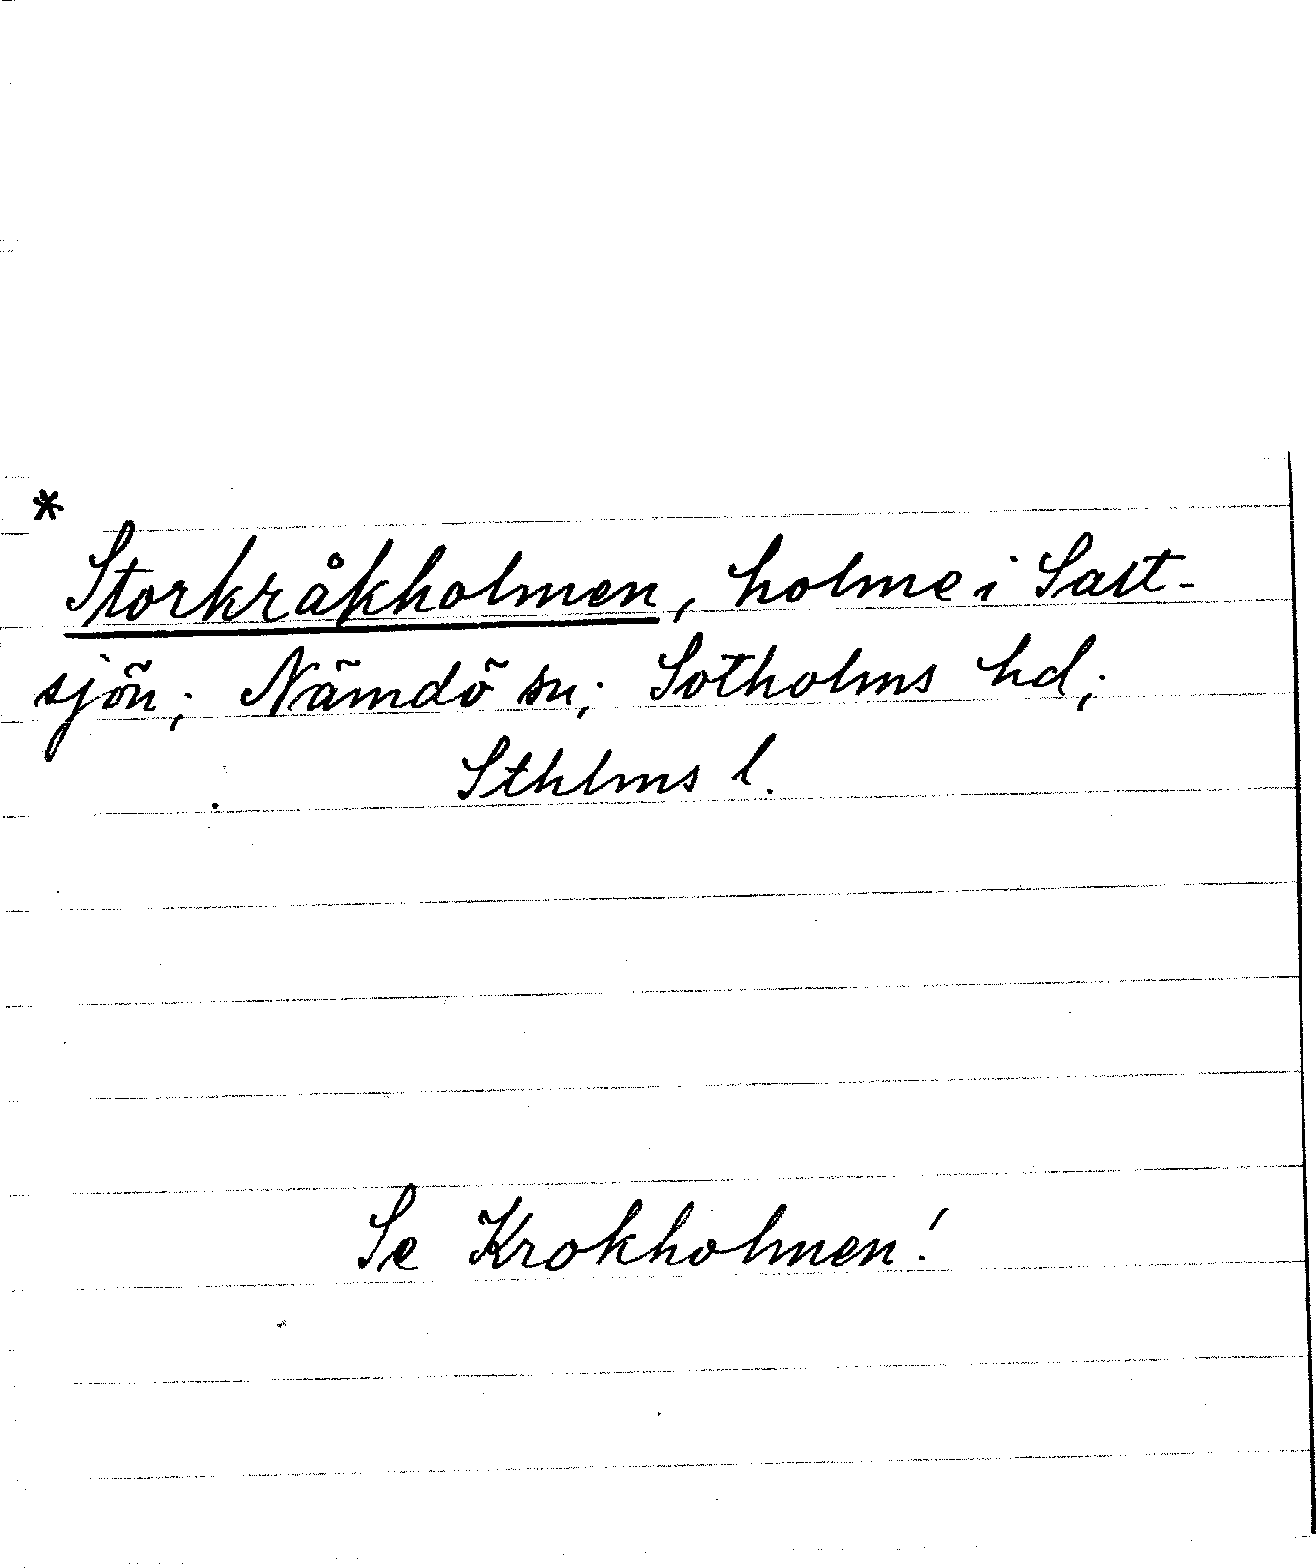 *
Storkråkholmen, holme i Salt-
sjön; Nämdö sn; Sotholms hd;
Sthlms l.
Se Krokholmen!